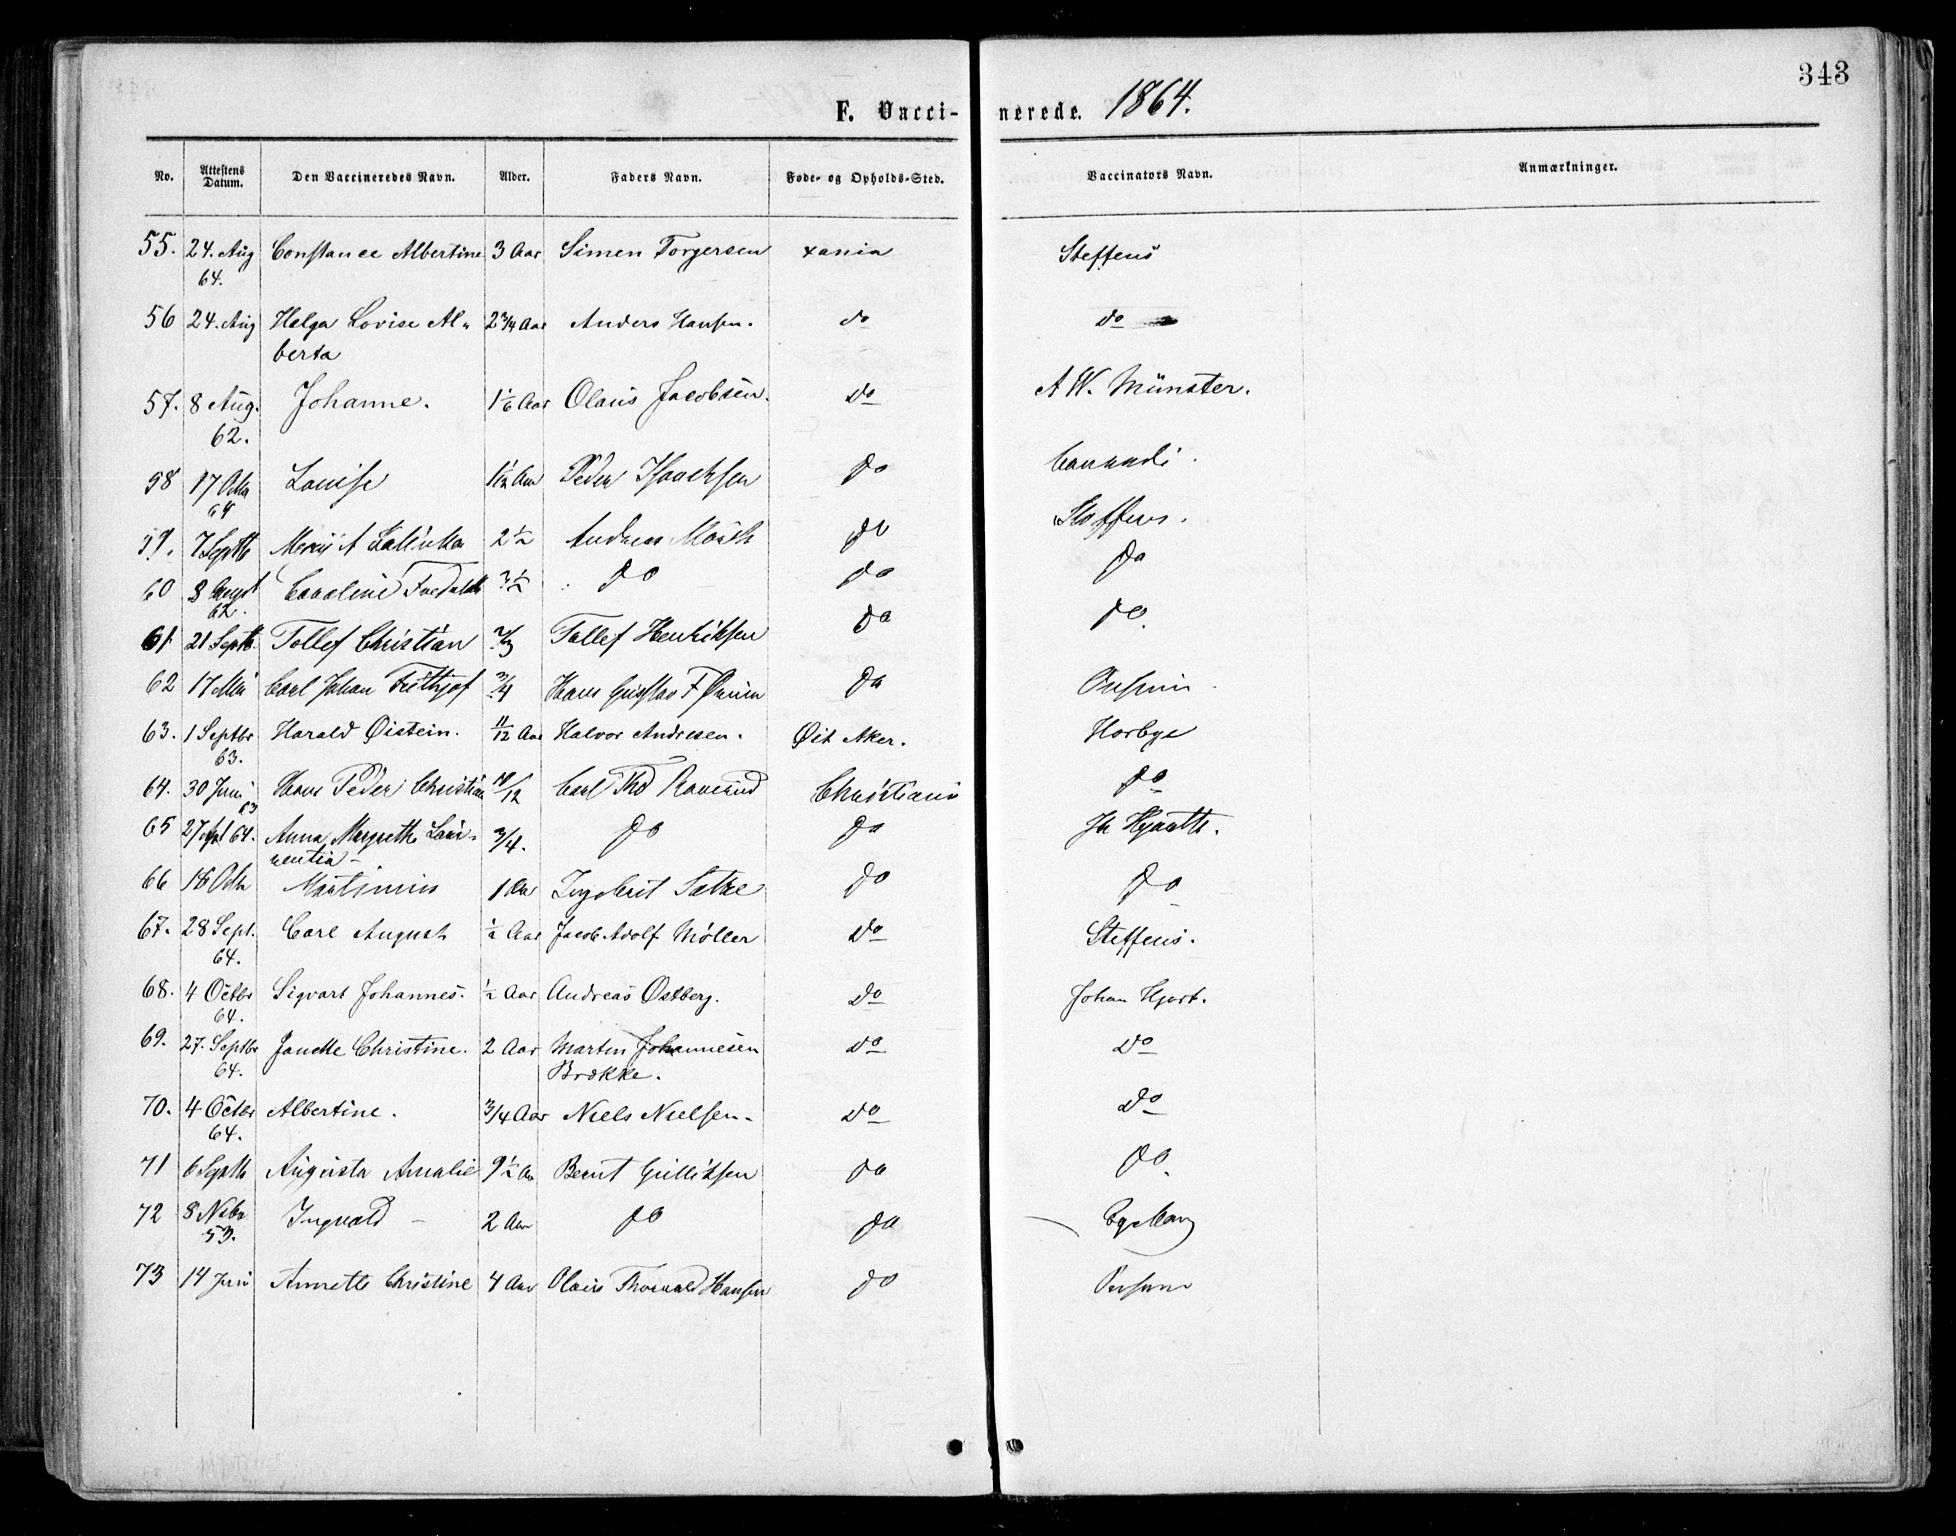 343
F. Vaccinerede. 1864.
No. Attestens Datum. Den Vaccineredes Navn. Alder. Faders Navn. Føde- og Opholds-Sted. Vaccinators Navn. Anmærkninger.
55. 24. Aug 64. Constance Albertine 3 Aar Simen Torgersen xania Steffens
56 24. Aug Helga Lovise Al- 2 3/4 Aar Anders Hansen. do do
berta
57. 8 Aug. 62. Johanne. 1 1/6 Aar Olaus Jacobsen. do A W. Münster.
58 17 Octr 64 Louise 1 1/2 Aar Peder Isaachsen do
59. 7 Septb 2 1/2 Andreas do Steffens.
60 8 August 62. Caroline 3 1/2 do do do
61 21 Septb. Tollef Christian Tollef Henriksen do do
62 17 Mai Carl Johan Frithjof 3/4 Hans Gustav F do
63. 1 Septbr 63. Harald Øistein. 11/12 Aar Halvor Andresen. Øst Aker. Horbye
64. 30 Juni 63 Hans Peder Christian 10/12 Carl Thd Christiania do
65 27 Apl 64. Anna Margrethe Lau- 3/4. do do Jh Hjorth.
rentia -
66 18 Octr Martinius 1 Aar Ingebrit do do
67. 28 Sept. 64. Carl August 1/2 Aar Jacob Adolf Møller do Steffens.
68. 4 Octbr 64. Sigvart Johannes. 1/2 Aar Andreas Østberg. do Johan Hjort.
69. 27. Septbr 64. Janette Christine. 2 Aar Martin Johannesen do do
Brække.
70. 4 Octbr 64. Albertine. 3/4 Aar Niels Nielsen. do do
71 6 Septb Augusta Amalie 9 1/2 Aar Bernt Gulliksen do do.
72 8 Nobr 53. Ingvald - 2 Aar do do
73 14 Juni Annette Christine 4 Aar Olaus Thorvald Hansen do